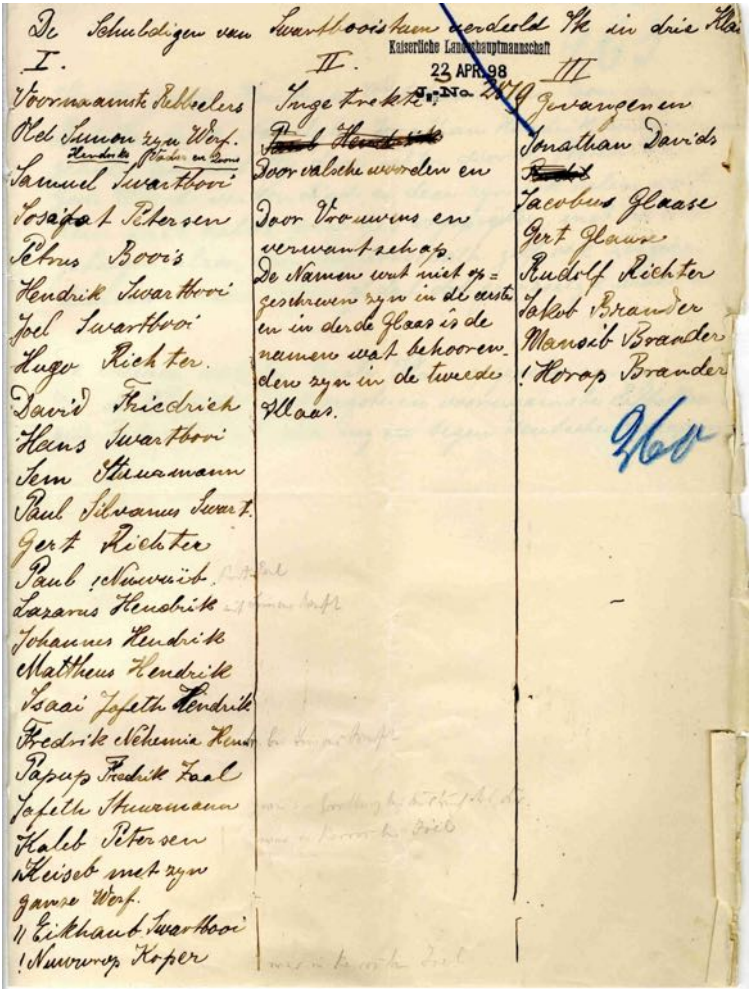 De Schuldigen van Swartbooistam verdeeld Ik in drie Klas
Kaiserliche Landeshauptmannschaft
22 APR. 98
J.-No. 2879
I.
Voornaamste Rebbelers
Old Simon zyn Werf.
Hendriks en
Samuel Swartbooi
Josafat Petersen
Petrus Boois
Hendrik Swartbooi
Joel Swartbooi
Hugo Richter.
David Friedrich
Hans Swartbooi
Sem Stuurmann
Paul Silvanus Swart.
Gert Richter
Paul
Lazarus Hendrik
Johannes Hendrik
Mattheus Hendrik
Isaai Jafeth Hendrik
Fredrik Nehemia Hend
Papup Fredrik Zaal
Jafeth Stuurmann
Kaleb Petersen
Keiseb met zyn
ganse Werf.
ǁ Eikhaub Swartbooi
Koper
II.
Ingetrekte
Paul Hendrik
Door valsche woorden en
Door Vrouwens en
verwantschap.
De Namen wat niet op=
geschreven zyn in de eerste
en in derde Glaas is de
namen wat behooren-
den zyn in de tweede
Klaas.
III
Gevangenen
Jonathan Davids
Jacobus Glaase
Gert Glaase
Rudolf Richter
Jakob Brander
Mansib Brander
! Horap Brander
260